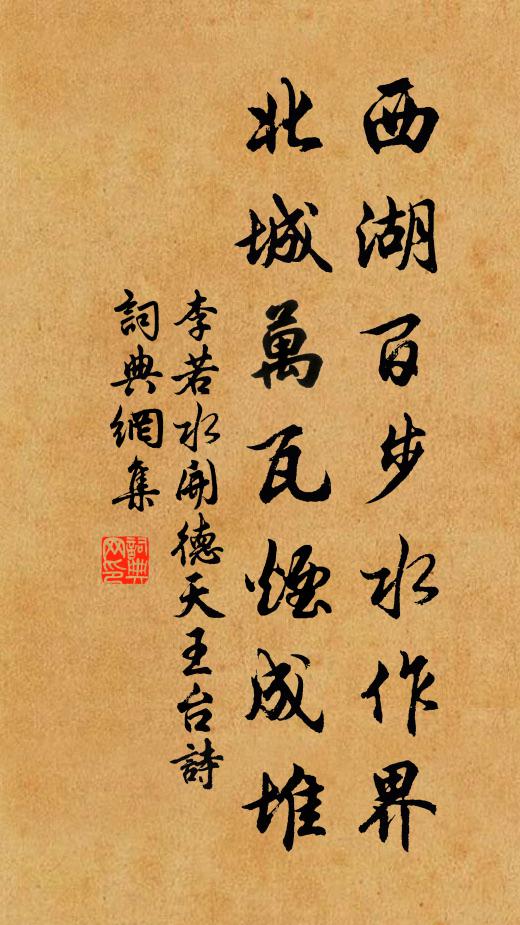 西湖百步水作界
北城萬瓦煙成堆
李若水開德天王台詩
詞典網集
詞典网印